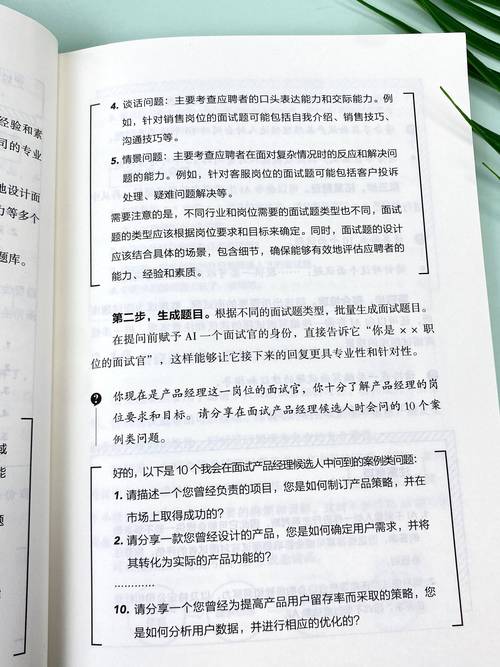 经验和素
司的专业
地设计面
力等多个
题库。
域
能
题
4. 谈话问题：主要考查应聘者的口头表达能力和交际能力。例
如，针对销售岗位的面试题可能包括自我介绍、销售技巧、
沟通技巧等。
5. 情景问题：主要考查应聘者在面对复杂情况时的反应和解决问
题的能力。例如，针对客服岗位的面试题可能包括客户投诉
处理、疑难问题解决等。
需要注意的是，不同行业和岗位需要的面试题类型也不同，面试
题的类型应该根据岗位要求和目标来确定。同时，面试题的设计
应该结合具体的场景，包含细节，确保能够有效地评估应聘者的
能力、经验和素质。
第二步，生成题目。根据不同的面试题类型，批量生成面试题目。
在提问前赋予 AI 一个面试官的身份，直接告诉它“你是 × × 职
位的面试官”，这样能够让它接下来的回复更具专业性和针对性。
你现在是产品经理这一岗位的面试官，你十分了解产品经理的岗
位要求和目标。请分享在面试产品经理候选人时会问的 10 个案
例类问题。
好的，以下是 10 个我会在面试产品经理候选人中问到的案例类问题：
1. 请描述一个您曾经负责的项目，您是如何制订产品策略，并在
市场上取得成功的？
2. 请分享一款您曾经设计的产品，您是如何确定用户需求，并将
其转化为实际的产品功能的？
…………
10. 请分享一个您曾经为提高产品用户留存率而采取的策略，您
是如何分析用户数据，并进行相应的优化的？